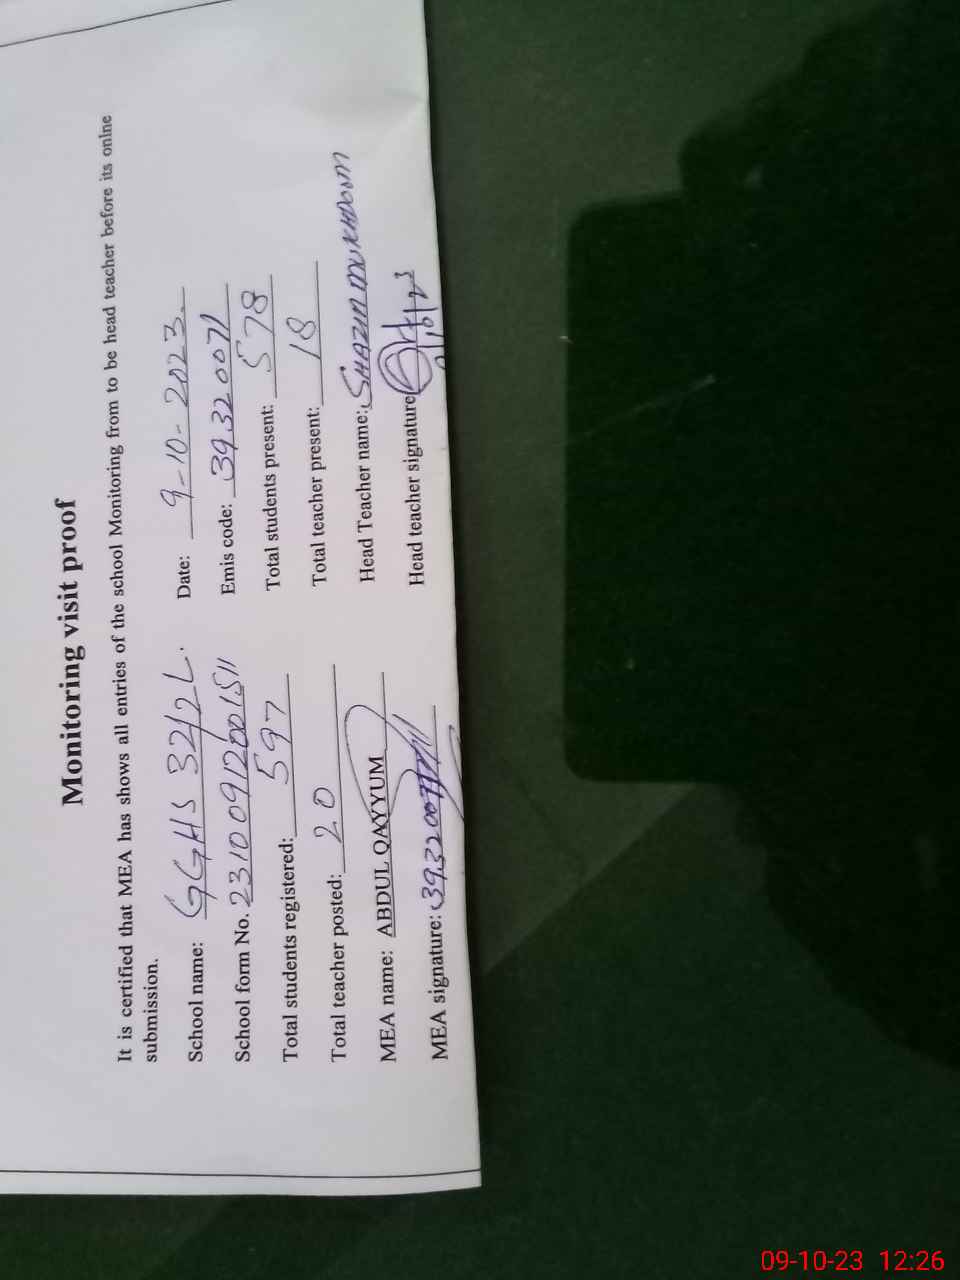 Monitoring visit proof
It is certified that MEA has shows all entries of the school Monitoring from to be head teacher before its onlne
submission.
School name: GGHS 32/2L. Date: 9-10-2023.
School form No. 23100912001511 Emis code: 39320071
Total students registered: 597 Total students present: 578
Total teacher posted: 20 Total teacher present: 18
MEA name: ABDUL QAYYUM Head Teacher name: SHAZIM MUKHDOOM
MEA signature: 39320071 Head teacher signature
9/10/23
09-10-23 12:26